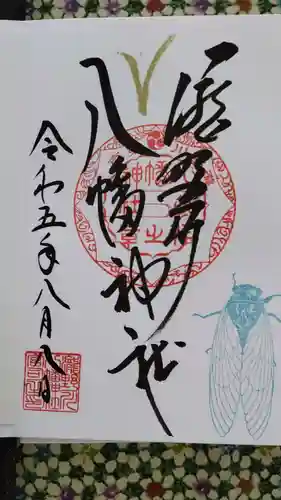 瀧野川
八幡神社
令和五年八月八日